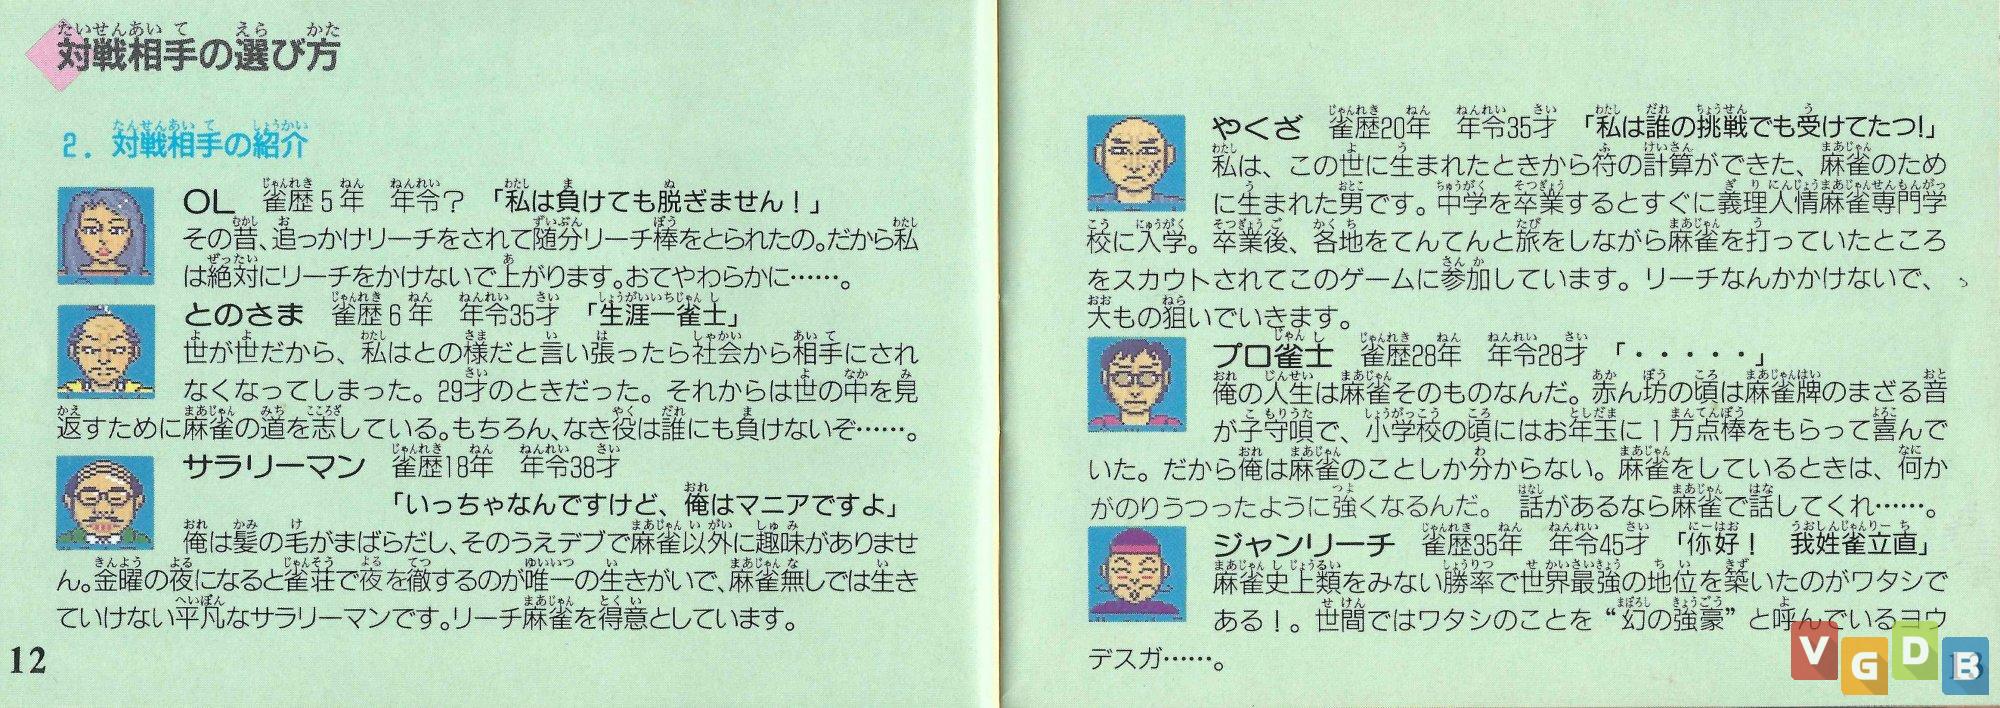 対戦相手の選び方
2. 対戦相手の紹介
OL 雀歴5年 年令? 「私は負けても脱ぎません!」
その昔、追っかけリーチをされて随分リーチ棒をとられたの。だから私
は絶対にリーチをかけないで上がります。おてやわらかに……。
とのさま 雀歴6年 年令35才 「生涯一雀士」
世が世だから、私はとの様だと言い張ったら社会から相手にされ
なくなってしまった。29才のときだった。それからは世の中を見
返すために麻雀の道を志している。もちろん、なき役は誰にも負けないぞ……。
サラリーマン 雀歴18年 年令38才
「いっちゃなんですけど、俺はマニアですよ」
俺は髪の毛がまばらだし、そのうえデブで麻雀以外に趣味がありませ
ん。金曜の夜になると雀荘で夜を徹するのが唯一の生きがいで、麻雀無しでは生き
ていけない平凡なサラリーマンです。リーチ麻雀を得意としています。
12
やくざ 雀歴20年 年令35才 「私は誰の挑戦でも受けてたつ!」
私は、この世に生まれたときから符の計算ができた、麻雀のため
に生まれた男です。中学を卒業するとすぐに義理人情麻雀専門学
校に入学。卒業後、各地をてんてんと旅をしながら麻雀を打っていたところ
をスカウトされてこのゲームに参加しています。リーチなんかかけないで、
大もの狙いでいきます。
プロ雀士 雀歴28年 年令28才 「・・・・・」
俺の人生は麻雀そのものなんだ。赤ん坊の頃は麻雀牌のまざる音
が子守唄で、小学校の頃にはお年玉に1万点棒をもらって喜んで
いた。だから俺は麻雀のことしか分からない。麻雀をしているときは、何か
がのりうつったように強くなるんだ。 話があるなら麻雀で話してくれ……。
ジャンリーチ 雀歴35年 年令45才 「你好! 我姓雀立直」
麻雀史上類をみない勝率で世界最強の地位を築いたのがワタシで
ある!。世間ではワタシのことを“幻の強豪”と呼んでいるヨウ
デスガ……。
VGDB
13